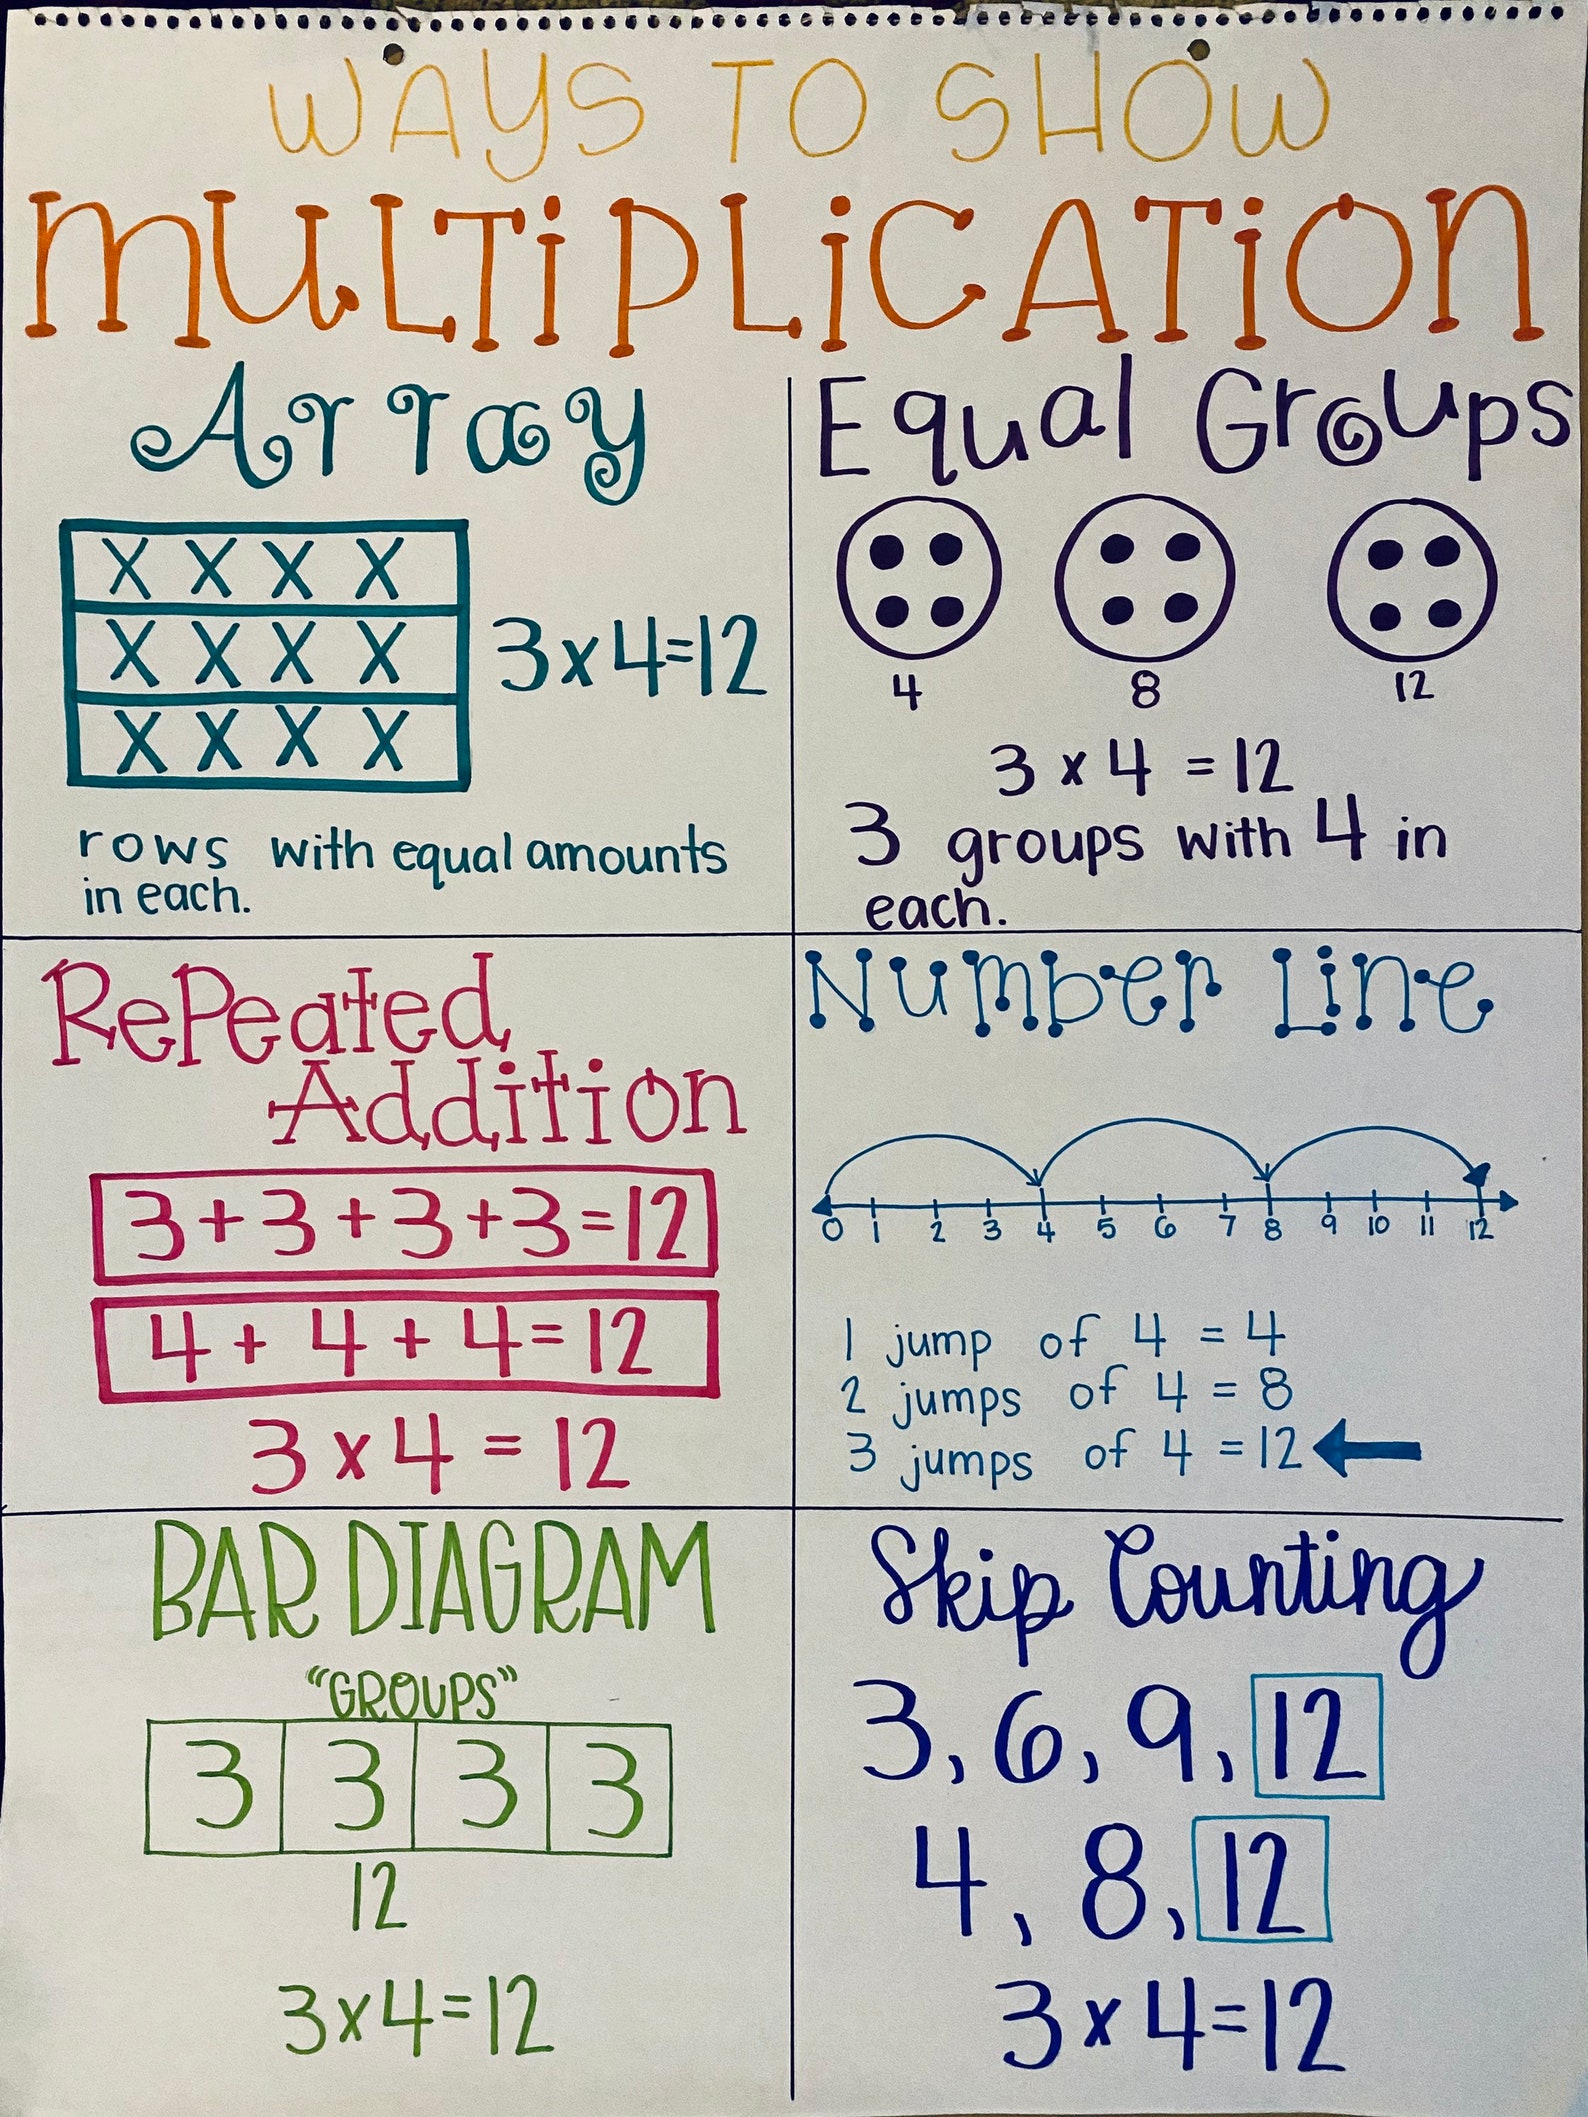 WAYS TO SHOW
MULTIPLICATION
Array
X X X X
X X X X
X X X X
3x4=12
rows with equal amounts
in each.
Equal Groups
4 8 12
3 x 4 = 12
3 groups with 4 in
each.
RePeated
Addition
3+3+3+3=12
4+4+4=12
3 x 4 = 12
Number Line
0 1 2 3 4 5 6 7 8 9 10 11 12
1 jump of 4 = 4
2 jumps of 4 = 8
3 jumps of 4 = 12
BAR DIAGRAM
"GROUPS"
3 3 3 3
12
3x4=12
Skip Counting
3, 6, 9, 12
4, 8, 12
3x4=12